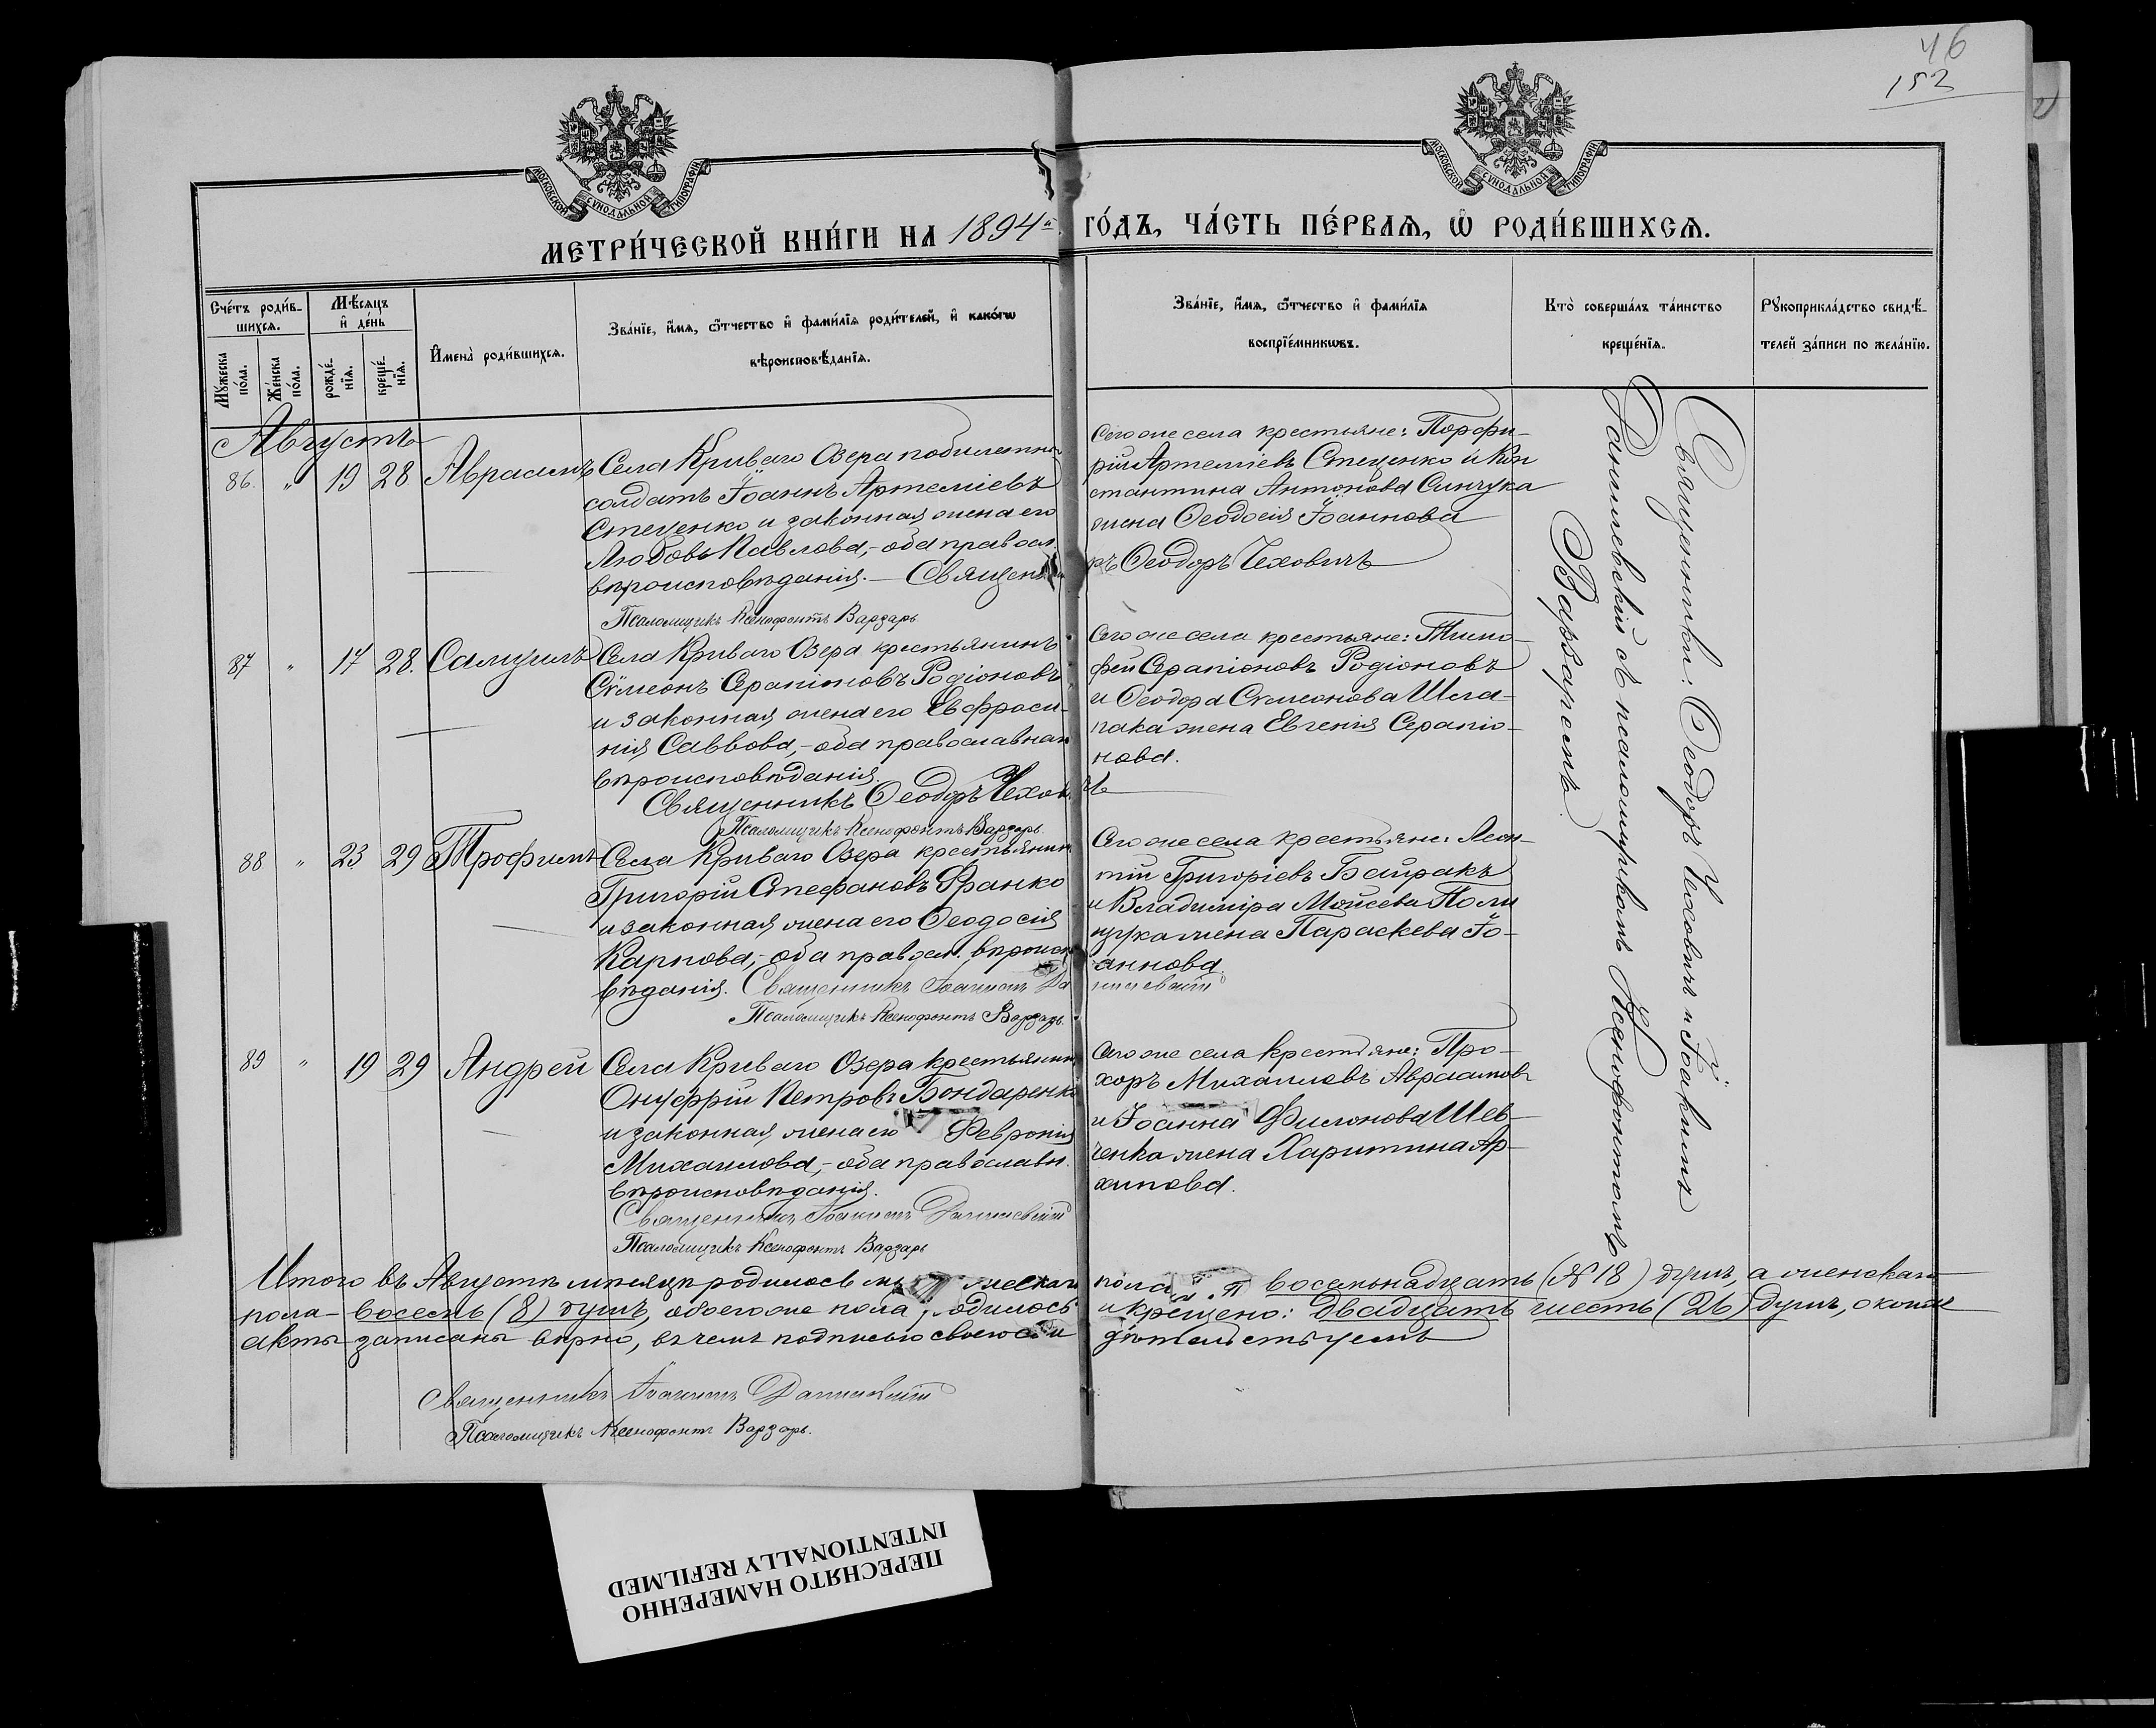 46
152
МОСКОВСКОЙ СѴНОДАЛЬНОЙ ТИПОГРАФІИ
МОСКОВСКОЙ СѴНОДАЛЬНОЙ ТИПОГРАФІИ
МЕТРИ́ЧЕСКОЙ КНИ́ГИ НА 1894й ГО́ДЪ, ЧА́СТЬ ПЕ́РВАѦ, Ѡ҆ РОДИ́ВШИХСѦ.
Счетъ роди́в-
шихсѧ.
Мꙋжеска
по́ла.
Же́нска
по́ла.
Мѣ́сѧцъ
и҆ де́нь
рожде́-
нїѧ.
креще́-
нїѧ.
И҆мена̀ роди́вшихсѧ.
Зва́нїе, и҆́мѧ, ѻ҆́тчество и҆ фами́лїѧ роди́телей, и҆ како́гѡ
вѣроисповѣ́данїѧ.
Зва́нїе, и҆́мѧ, ѻ҆́тчество и҆ фами́лїѧ
воспрїе́мникѡвъ.
Кто̀ соверша́лъ та́инство
креще́нїѧ.
Рꙋкоприкла́дство свидѣ́-
телей за́писи по жела́нїю.
Августъ
86. " 19 28 Авраамъ
Села Криваго Озера
солдатъ Іоаннъ Артеміевъ
Стеценко и законная жена его
Любовь Павлова,- оба правосл.
вѣроисповѣданія.- Священникъ Ѳеодоръ Чеховичъ
Псаломщикъ Ксенофонтъ Варзарь
Сего же села крестьяне: Порфи-
рій Артеміевъ Стеценко и Кон
стантина Антонова Синчука
жена Ѳеодосія Іоаннова
87 " 17 28. Самуилъ
Села Криваго Озера крестьянинъ
Сѵмеонъ Серапіоновъ Родіоновъ
и законная жена его Евфроси-
нія Саввова,- оба православнаго
вѣроисповѣданія.
Священникъ Ѳеодоръ Чеховичъ
Псаломщикъ Ксенофонтъ Варзарь
Сего же села крестьяне: Тимо-
фей Серапіоновъ Родіоновъ
и Ѳеодора Сѵмеонова Шла-
пака жена Евгенія Серапіо-
нова.
88 " 23 29 Трофимъ
Села Криваго Озера крестьянинъ
Григорій Стефановъ Франко
и законная жена его Ѳеодосія
Карпова,- оба правосл. вѣроиспо
вѣданія. Священникъ Іоакимъ Данилевскій
Псаломщикъ Ксенофонтъ Варзарь
Сего же села крестьяне: Леон-
тій Григоріевъ Байракъ
и Владиміра Мойсеева Поли
щука жена Параскева Іо-
аннова.
89 " 19 29 Андрей
Села Криваго Озера крестьянинъ
Онуфрій Петровъ Бондаренко
и законная жена его Февронія
Михаилова,- оба православн.
вѣроисповѣданія.
Священникъ Іоакимъ Данилевскій
Псаломщикъ Ксенофонтъ Варзарь
Сего же села крестьяне: Про-
хоръ Михаиловъ Авраамовъ
и Іоанна Филонова Шев-
ченка жена Харитина Ар-
хипова.
Священники: Ѳеодоръ Чеховичъ и Іоакимъ
Данилевскій съ псаломщикомъ Ксенофонтомъ
Варзаремъ.
Итого въ Августѣ мѣсяцѣ родилось пола восемьнадцать (№ 18) душъ, а женскаго
пола- восемь (8) душъ, обоего же пола родилось и крещено: двадцать шесть (26) душъ, о коихъ
акты записаны вѣрно, въ чемъ подписью своею свидѣтельствуемъ
Священникъ Іоакимъ Данилевскій
Псаломщикъ Ксенофонтъ Варзарь.
ПЕРЕСНЯТО НАМЕРЕННО
INTENTIONALLY REFILMED